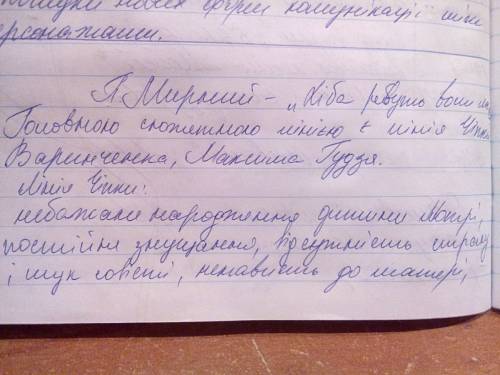 нових форм комунікації між
персонажами.
П. Мирний – „Хіба ревуть воли
Головною сюжетною лінією є лінія Чіпки
Варинченка, Максима Гудзя.
Лінія Чіпки:
небажане народження дитини Мотрі,
постійне знущання, відсутність страху
і мук совісті, ненависть до матері,